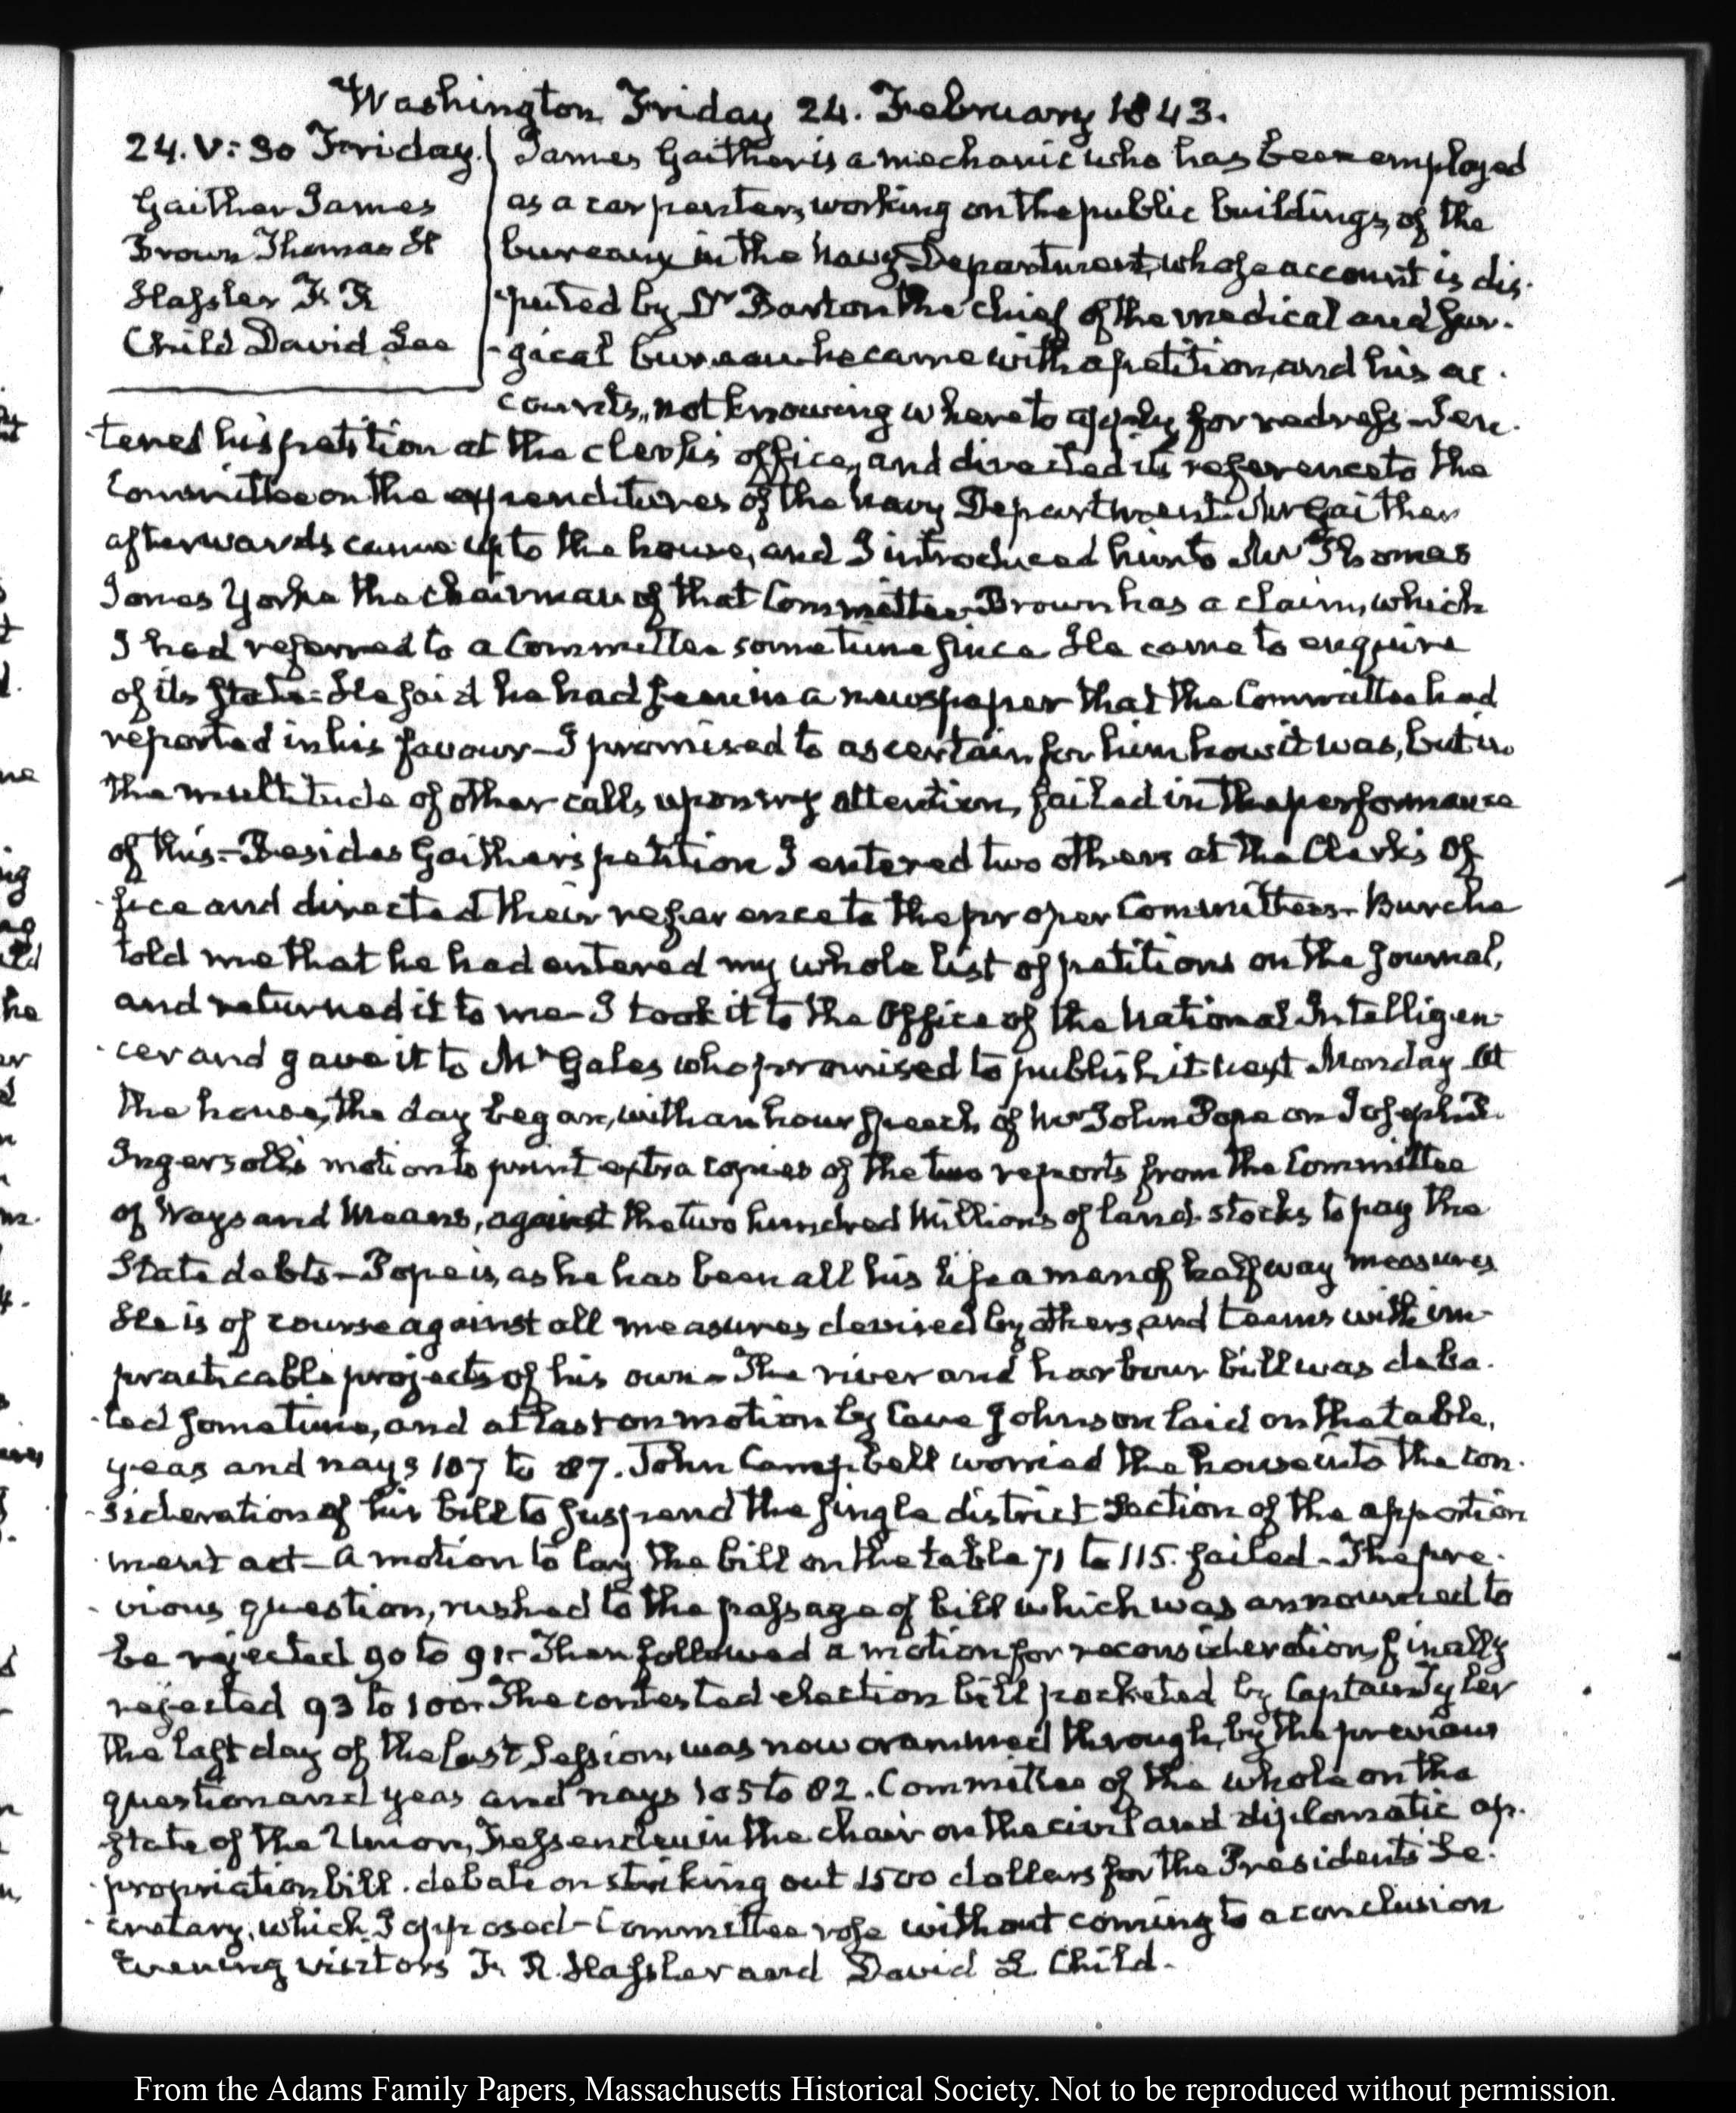 Washington Friday 24. February 1843.
24. V: 30 Friday.
Gaither James
Brown Thomas H
Hassler F. R
Child David Lee
James Gaither is a mechanic who has been employed
as a carpenter, working on the public buildings, of the
bureaux in the Navy Department, whose account is dis-
-puted by Dr Barton the chief of the medical and sur-
-gical bureau he came with a petition, and his ac-
counts, not knowing where to apply for redress - I en-
-tered his petition at the clerk's office, and directed its reference to the
Committee on the expenditures of the Navy Department. Mr Gaither
afterwards came up to the house, and I introduced him to Mr Thomas
Jones Yorke the chairman of that Committee. Brown has a claim, which
I had referred to a Committee some time since He came to enquire
of its state - He said he had seen in a newspaper that the Committee had
reported in his favour - I promised to ascertain for him how it was, but in
the multitude of other calls upon my attention, failed in the performance
of this - Besides Gaither's petition I entered two others at the Clerk's Of
-fice and directed their reference to the proper Committees - Burche
told me that he had entered my whole list of petitions on the journal,
and returned it to me - I took it to the Office of the National Intelligen-
-cer and gave it to Mr Gales who promised to publish it next Monday At
the house, the day began, with an hour speech of Mr John Pope on Joseph R.
Ingersoll's motion to print extra copies of the two reports from the Committee
of Ways and Means, against the two hundred Millions of land-stocks to pay the
State debts - Pope is, as he has been all his life a man of half way measures
He is of course against all measures devised by others, and teems with im-
practicable projects of his own - The river and harbour bill was deba-
-ted some time, and at last on motion by Cave Johnson laid on the table,
yeas and nays 107 to 87. John Campbell worried the house into the con-
-sideration of his bill to suspend the single district Section of the apportion
-ment act - A motion to lay the bill on the table 71 to 115. failed - The pre-
-vious question, rushed to the passage of bill which was announced to
be rejected 90 to 91 - Then followed a motion for reconsideration, finally
rejected 93 to 100. The contested election bill pocketed by Captain Tyler
the last day of the last Session, was now crammed through, by the previous
question and yeas and nays 105 to 82. Committee of the whole on the
state of the Union, Fessenden in the chair on the civil and diplomatic ap-
-propriation bill. debate on striking out 1500 dollars for the President's Se-
-cretary, which I opposed - Committee rose without coming to a conclusion
Evening visitors F. R. Hassler and David L. Child.
From the Adams Family Papers, Massachusetts Historical Society. Not to be reproduced without permission.